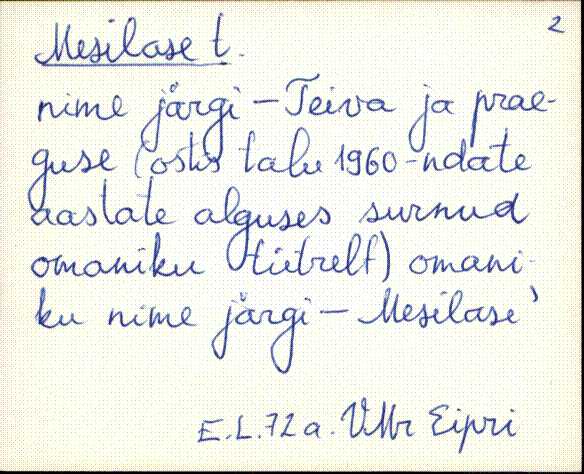 2
Mesilase t.
nime järgi – Teiva ja prae-
guse (ostis talu 1960-ndate
aastate alguses surnud
omaniku tütrelt) omani-
ku nime järgi – Mesilase'
E.L. 72 a. VMr Eipri